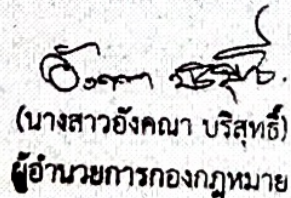 (นางสาวอังคณา บริสุทธิ์)
ผู้อำนวยการกองกฎหมาย